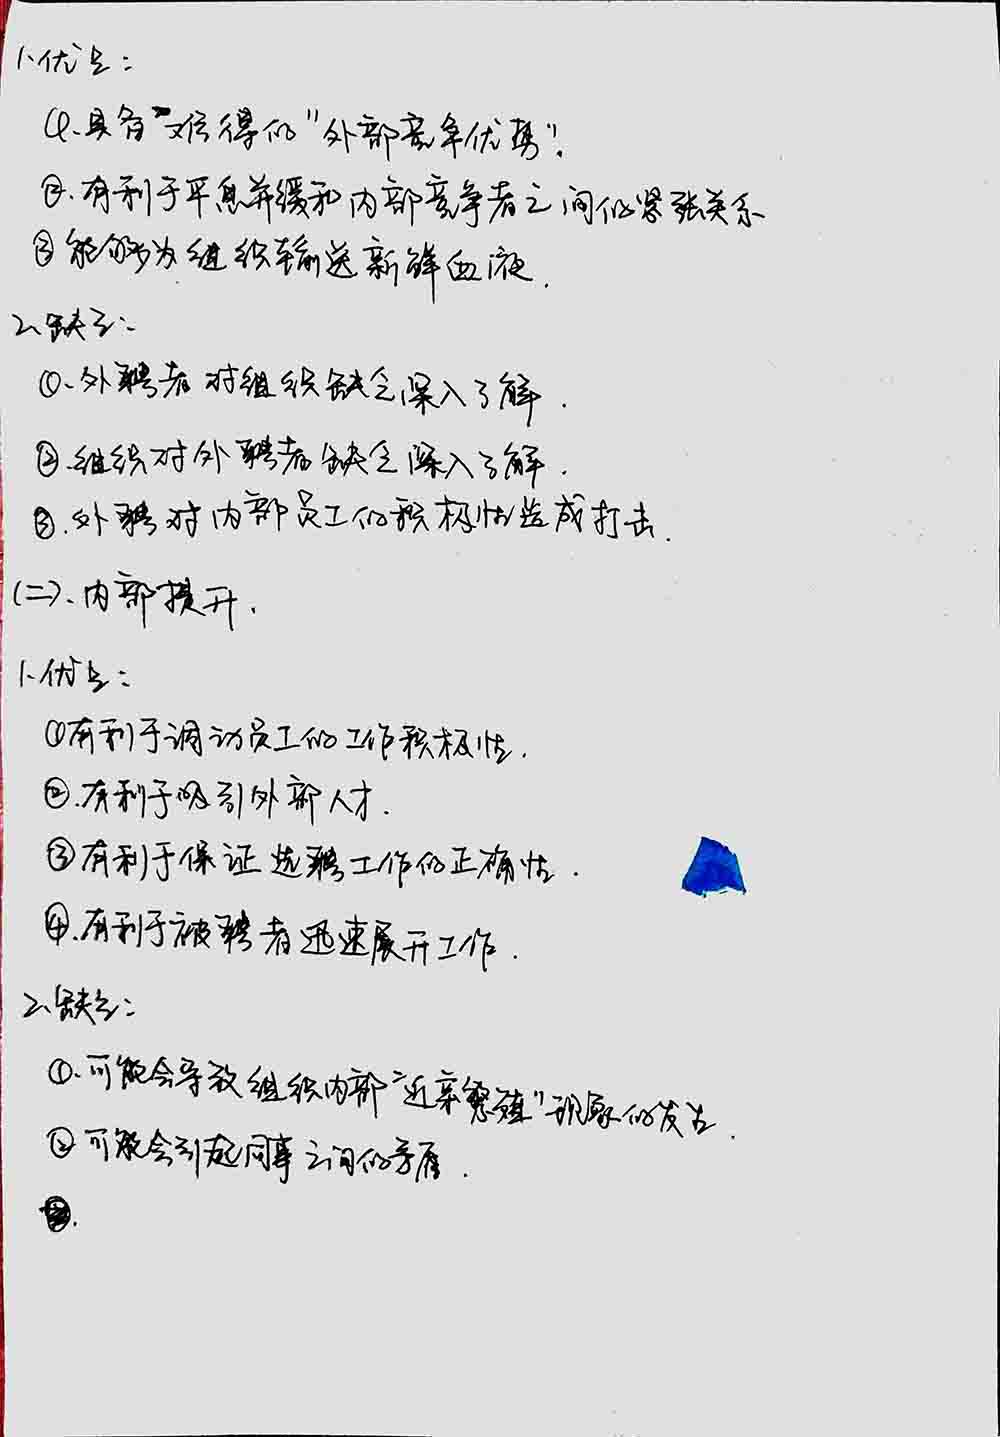 1、优点：
①、具备"难得的"外部竞争优势"。
②、有利于平息并缓和内部竞争者之间的紧张关系
③能够为组织输送新鲜血液.
2、缺点：
①、外聘者对组织缺乏深入了解.
②、组织对外聘者缺乏深入了解.
③、外聘对内部员工的积极性造成打击.
(二)、内部提升.
1、优点：
①有利于调动员工的工作积极性.
②、有利于吸引外部人才.
③有利于保证选聘工作的正确性.
④、有利于被聘者迅速展开工作.
2、缺点：
①、可能会导致组织内部"近亲繁殖"现象的发生.
②可能会引起同事之间的矛盾.